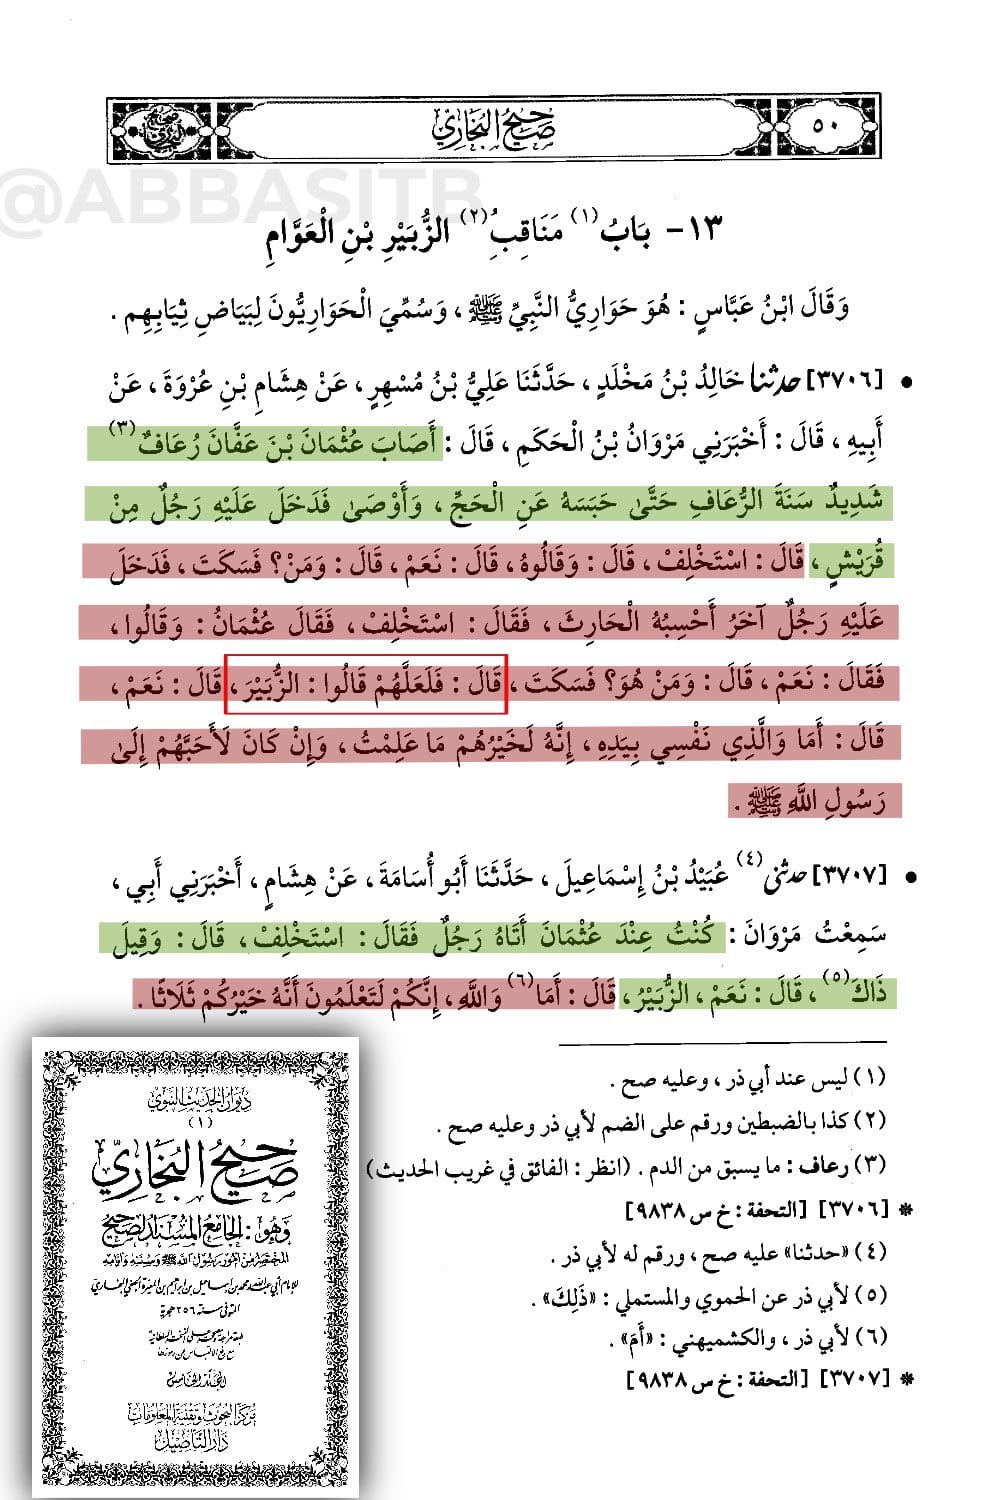 صحيح البخاري
٥٠
@ABBASITB
١٣- بَابُ(١) مَنَاقِبِ(٢) الزُّبَيْرِ بْنِ الْعَوَّامِ
وَقَالَ ابْنُ عَبَّاسٍ : هُوَ حَوَارِيُّ النَّبِيِّ ﷺ ، وَسُمِّيَ الْحَوَارِيُّونَ لِبَيَاضِ ثِيَابِهِم .
● [٣٧٠٦] حدثنا خَالِدُ بْنُ مَخْلَدٍ ، حَدَّثَنَا عَلِيُّ بْنُ مُسْهِرٍ ، عَنْ هِشَامِ بْنِ عُرْوَةَ ، عَنْ
أَبِيهِ ، قَالَ : أَخْبَرَنِي مَرْوَانُ بْنُ الْحَكَمِ ، قَالَ : أَصَابَ عُثْمَانَ بْنَ عَفَّانَ رُعَافٌ(٣)
شَدِيدٌ سَنَةَ الرُّعَافِ حَتَّىٰ حَبَسَهُ عَنِ الْحَجِّ ، وَأَوْصَىٰ فَدَخَلَ عَلَيْهِ رَجُلٌ مِنْ
قُرَيْشٍ ، قَالَ : اسْتَخْلِفْ ، قَالَ : وَقَالُوهُ ، قَالَ : نَعَمْ ، قَالَ : وَمَنْ؟ فَسَكَتَ ، فَدَخَلَ
عَلَيْهِ رَجُلٌ آخَرُ أَحْسِبُهُ الْحَارِثَ ، فَقَالَ : اسْتَخْلِفْ ، فَقَالَ عُثْمَانُ : وَقَالُوا ،
فَقَالَ : نَعَمْ ، قَالَ : وَمَنْ هُوَ؟ فَسَكَتَ ، قَالَ : فَلَعَلَّهُمْ قَالُوا : الزُّبَيْرَ ، قَالَ : نَعَمْ ،
قَالَ : أَمَا وَالَّذِي نَفْسِي بِيَدِهِ ، إِنَّهُ لَخَيْرُهُمْ مَا عَلِمْتُ ، وَإِنْ كَانَ لَأَحَبَّهُمْ إِلَىٰ
رَسُولِ اللَّهِ ﷺ .
● [٣٧٠٧] حدثني(٤) عُبَيْدُ بْنُ إِسْمَاعِيلَ ، حَدَّثَنَا أَبُو أُسَامَةَ ، عَنْ هِشَامٍ ، أَخْبَرَنِي أَبِي ،
سَمِعْتُ مَرْوَانَ : كُنْتُ عِنْدَ عُثْمَانَ أَتَاهُ رَجُلٌ فَقَالَ : اسْتَخْلِفْ ، قَالَ : وَقِيلَ
ذَاكَ(٥) ، قَالَ : نَعَمْ ، الزُّبَيْرُ ، قَالَ : أَمَا(٦) وَاللَّهِ ، إِنَّكُمْ لَتَعْلَمُونَ أَنَّهُ خَيْرُكُمْ ثَلَاثًا .
(١) ليس عند أبي ذر ، وعليه صح .
(٢) كذا بالضبطين ورقم على الضم لأبي ذر وعليه صح .
(٣) رعاف : ما يسبق من الدم . (انظر : الفائق في غريب الحديث)
* [٣٧٠٦] [التحفة : خ س ٩٨٣٨]
(٤) «حدثنا» عليه صح ، ورقم له لأبي ذر .
(٥) لأبي ذر عن الحموي والمستملي : «ذَلِكَ» .
(٦) لأبي ذر ، والكشميهني : «أَمَ» .
* [٣٧٠٧] [التحفة : خ س ٩٨٣٨]
ديوان الحديث النبوي
(١)
صحيح البخاري
وهو : الجامع المسند الصحيح
المختصر من أمور رسول الله ﷺ وسننه وأيامه
للإمام أبي عبد الله محمد بن إسماعيل بن إبراهيم بن المغيرة الجعفي البخاري
المتوفى سنة ٢٥٦ هجرية
المجلد الخامس
مركز البحوث وتقنية المعلومات
دار التأصيل